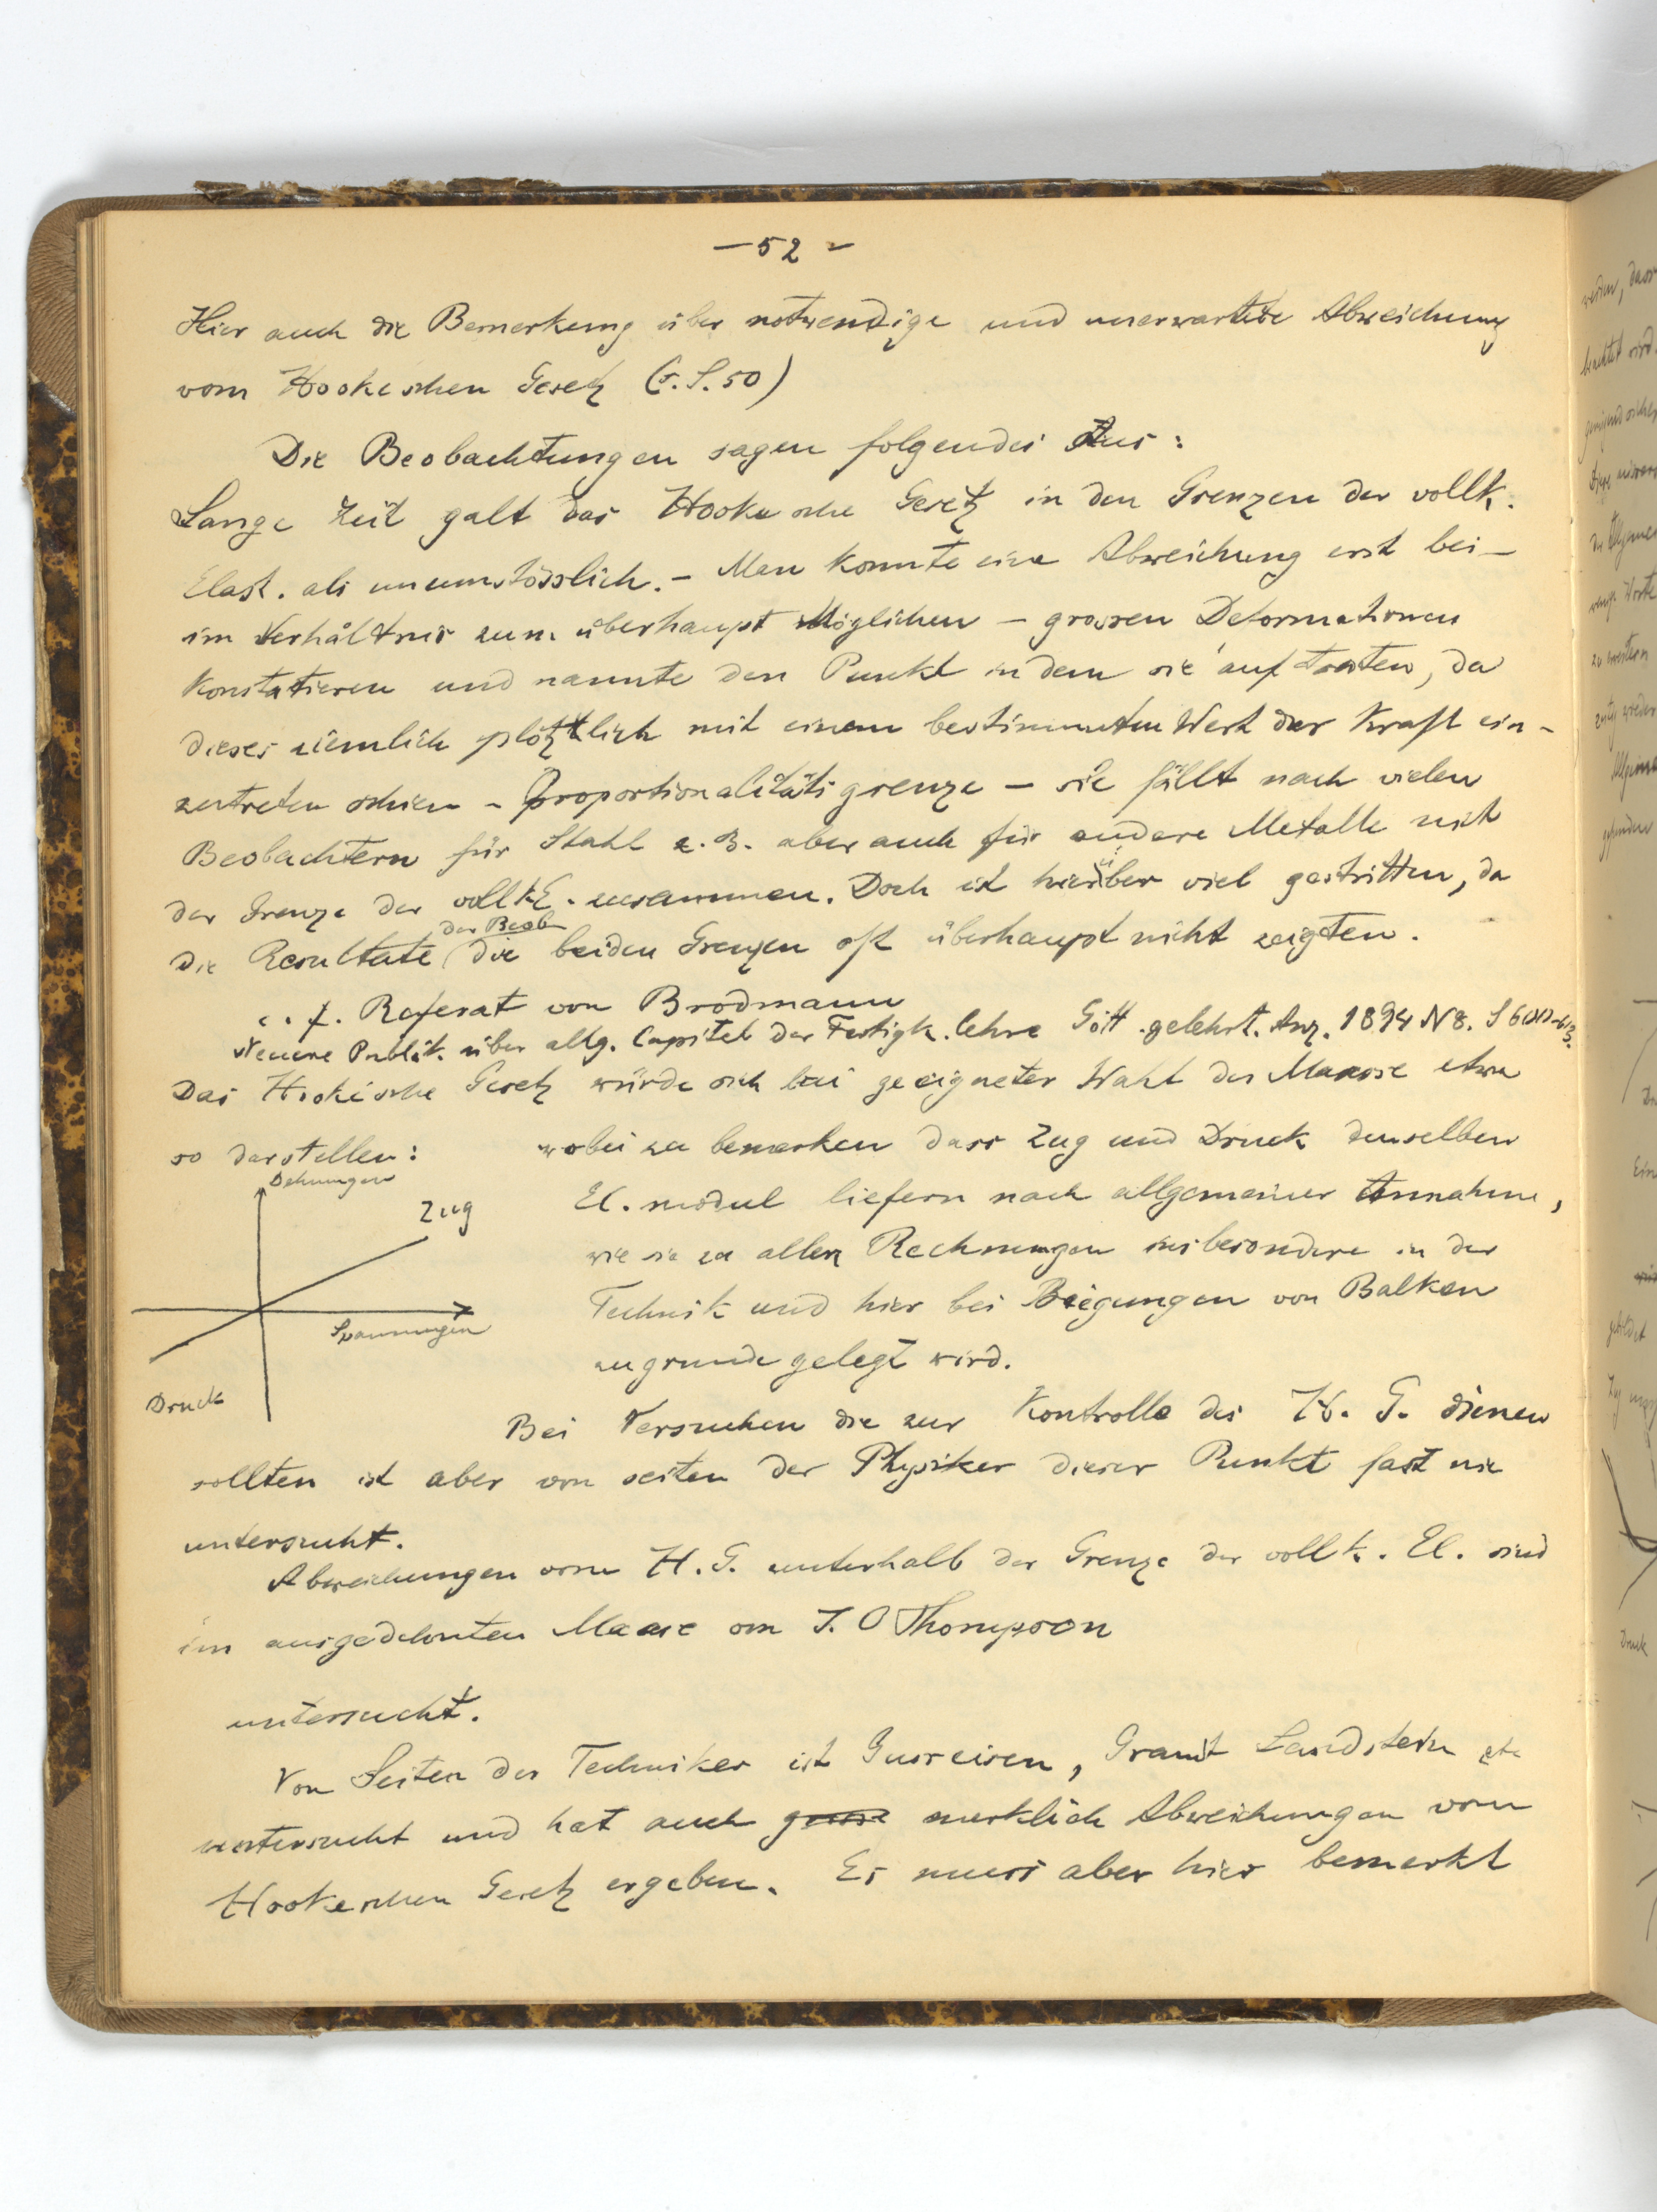 — 52 —
Hier auch die Bemerkung über notwendige und unerwartete Abweichung
vom Hookeschen Gesetz (s. S. 50)
Die Beobachtungen sagen folgendes Aus:
Lange Zeit galt das Hookesche Gesetz in den Grenzen der vollk.
Elast. als unumstösslich. – Man konnte eine Abweichung erst bei –
im Verhältnis zum überhaupt Möglichen – grossen Deformationen
konstatieren und nannte den Punkt in dem sie auftraten, da
dieses ziemlich plötzlich mit einem bestimmten Wert der Kraft ein-
zutreten schien – Proportionalitätsgrenze – sie fällt nach vielen
Beobachtern für Stahl z. B. aber auch für andere Metalle mit
der Grenze der vollk. E. zusammen. Doch ist hierüber viel gestritten, da
der Beob
die Resultate die beiden Grenzen oft überhaupt nicht zeigten.
c. f. Referat von Brodmann
Neuere Publik. über allg. Capitel der Festigk. lehre Gött. gelehrt. Anz. 1894 N 8. S
Das Hookesche Gesetz würde sich bei geeigneter Wahl der Maasse etwa
so darstellen:
wobei zu bemerken dass Zug und Druck denselben
El. modul liefern nach allgemeiner Annahme,
wie sie zu allen Rechnungen insbesondere in der
Technik und hier bei Biegungen von Balken
zugrunde gelegt wird.
Dehnungen
Zug
Spannungen
Druck
Bei Versuchen die zur Kontrolle des H. G. dienen
sollten ist aber von seiten der Physiker dieser Punkt fast nie
untersucht.
Abweichungen vom H. G. unterhalb der Grenze der vollk. El. sind
im ausgedehnten Maase von J. O Thompson
untersucht.
Von Seiten der Techniker ist Gusseisen, Granit Sandstein etc
untersucht und hat auch grosse merklich Abweichungen vom
Hookeschen Gesetz ergeben. Es muss aber hier bemerkt